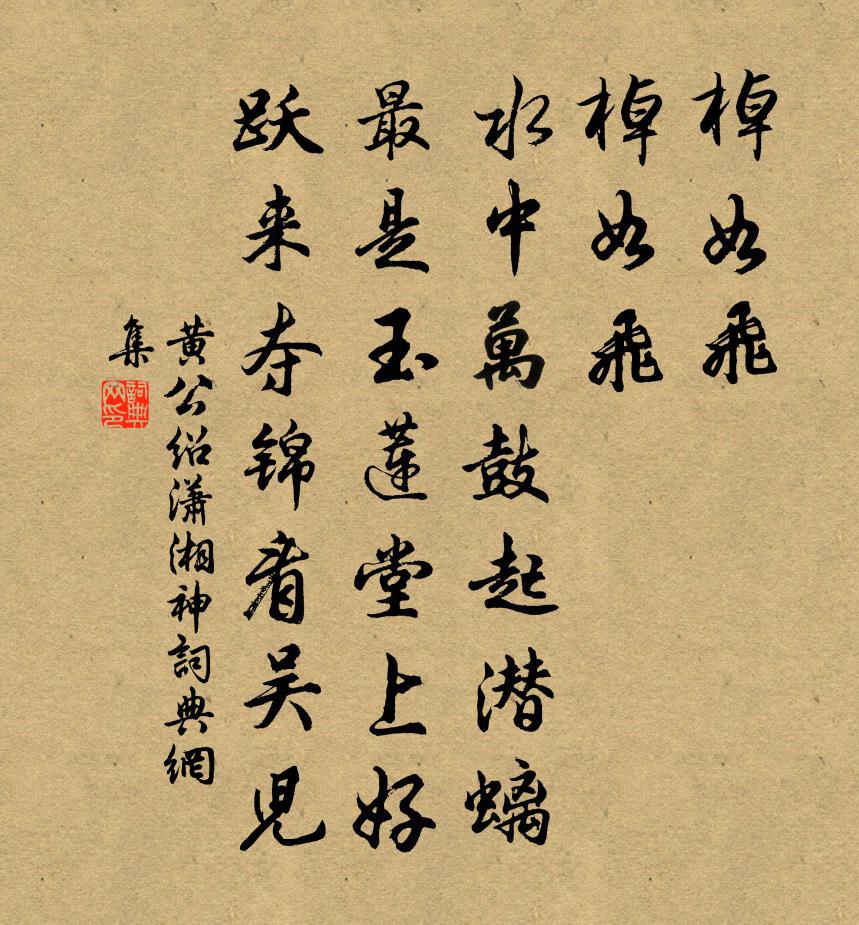 棹如飛
棹如飛
水中萬鼓起潜螭
最是玉蓮堂上好
跃来夺锦看吴児
黄公绍瀟湘神詞典網
集
詞典網印